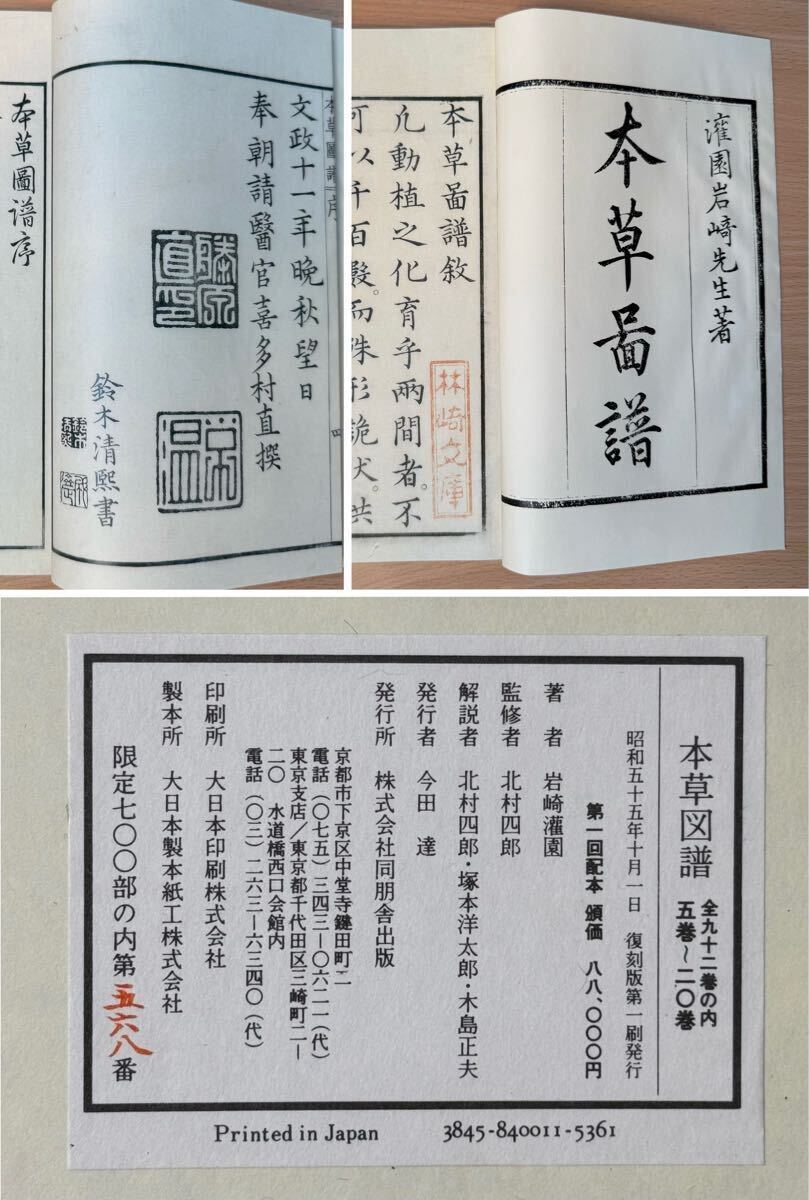 文政十一年晩秋望日
奉朝請醫官喜多村直撰
藤原直印
鈴木清熙書
本草圖譜序
灌園岩﨑先生著
本草圖譜
本草圖譜敘
凢動植之化育乎兩間者。不
可以千百數。而殊形詭状。共
林崎文庫
本草図譜 全九十二巻の内 五巻〜二〇巻
昭和五十五年十月一日 復刻版第一刷発行
第一回配本 頒価 八八、〇〇〇円
著者 岩崎灌園
監修者 北村四郎
解説者 北村四郎・塚本洋太郎・木島正夫
発行者 今田達
発行所 株式会社同朋舎出版
京都市下京区中堂寺鍵田町二
電話(〇七五)三四三―〇六二一(代)
東京支店/東京都千代田区三崎町二―
二〇 水道橋西口会館内
電話(〇三)二六三―六三四〇(代)
印刷所 大日本印刷株式会社
製本所 大日本製本紙工株式会社
限定七〇〇部の内第五六八番
Printed in Japan 3845-840011-5361